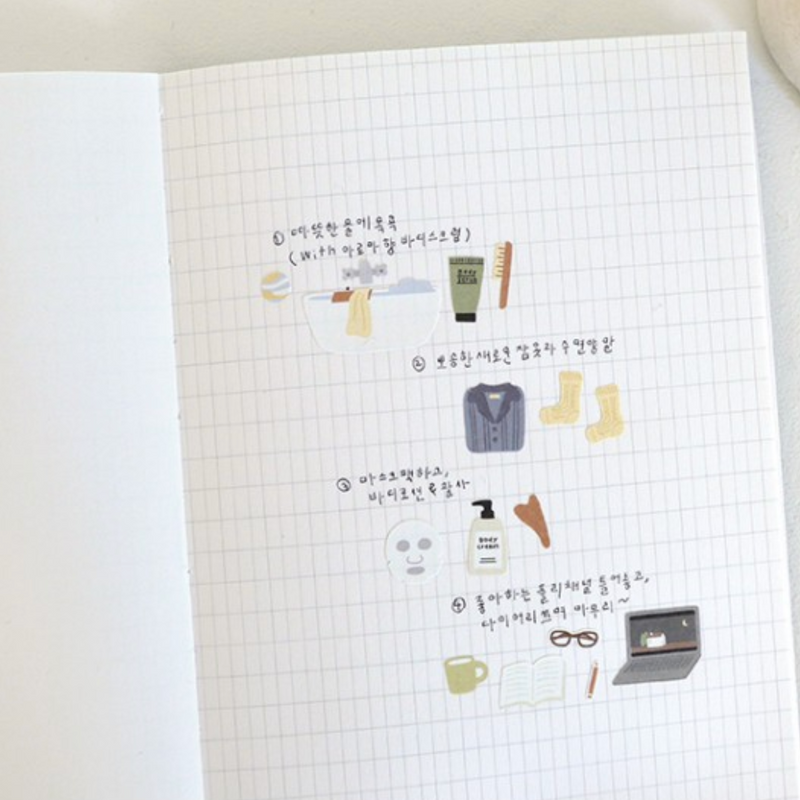 ① 따뜻한 물에 목욕
(With 아로마 향 바디스크럽)
BODY
SCRUB
② 뽀송한 새로운 잠옷과 수면양말
③ 마스크팩하고,
바디로션 & 괄사
BODY
CREAM
④ 좋아하는 플리채널 틀어놓고,
다이어리 쓰며 마무리~